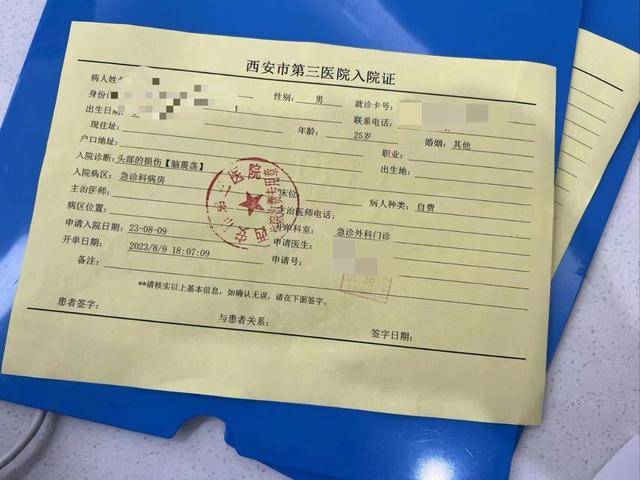 西安市第三医院入院证
病人姓名
性别: 男
就诊卡号:
身份
联系电话:
出生日期:
年龄: 25岁
婚姻: 其他
现住址:
职业:
户口地址:
出生地:
入院诊断: 头部的损伤【脑震荡】
入院病区: 急诊科病房
床位
病人种类: 自费
主治医师:
主治医师电话:
病区位置:
开单科室: 急诊外科门诊
申请入院日期: 23-08-09
申请医生:
开单日期: 2023/8/9 18:07:09
申请号:
备注:
**请核实以上基本信息, 如确认无误, 请在下面签字。
患者签字:
与患者关系:
签字日期:
西安市第三医院